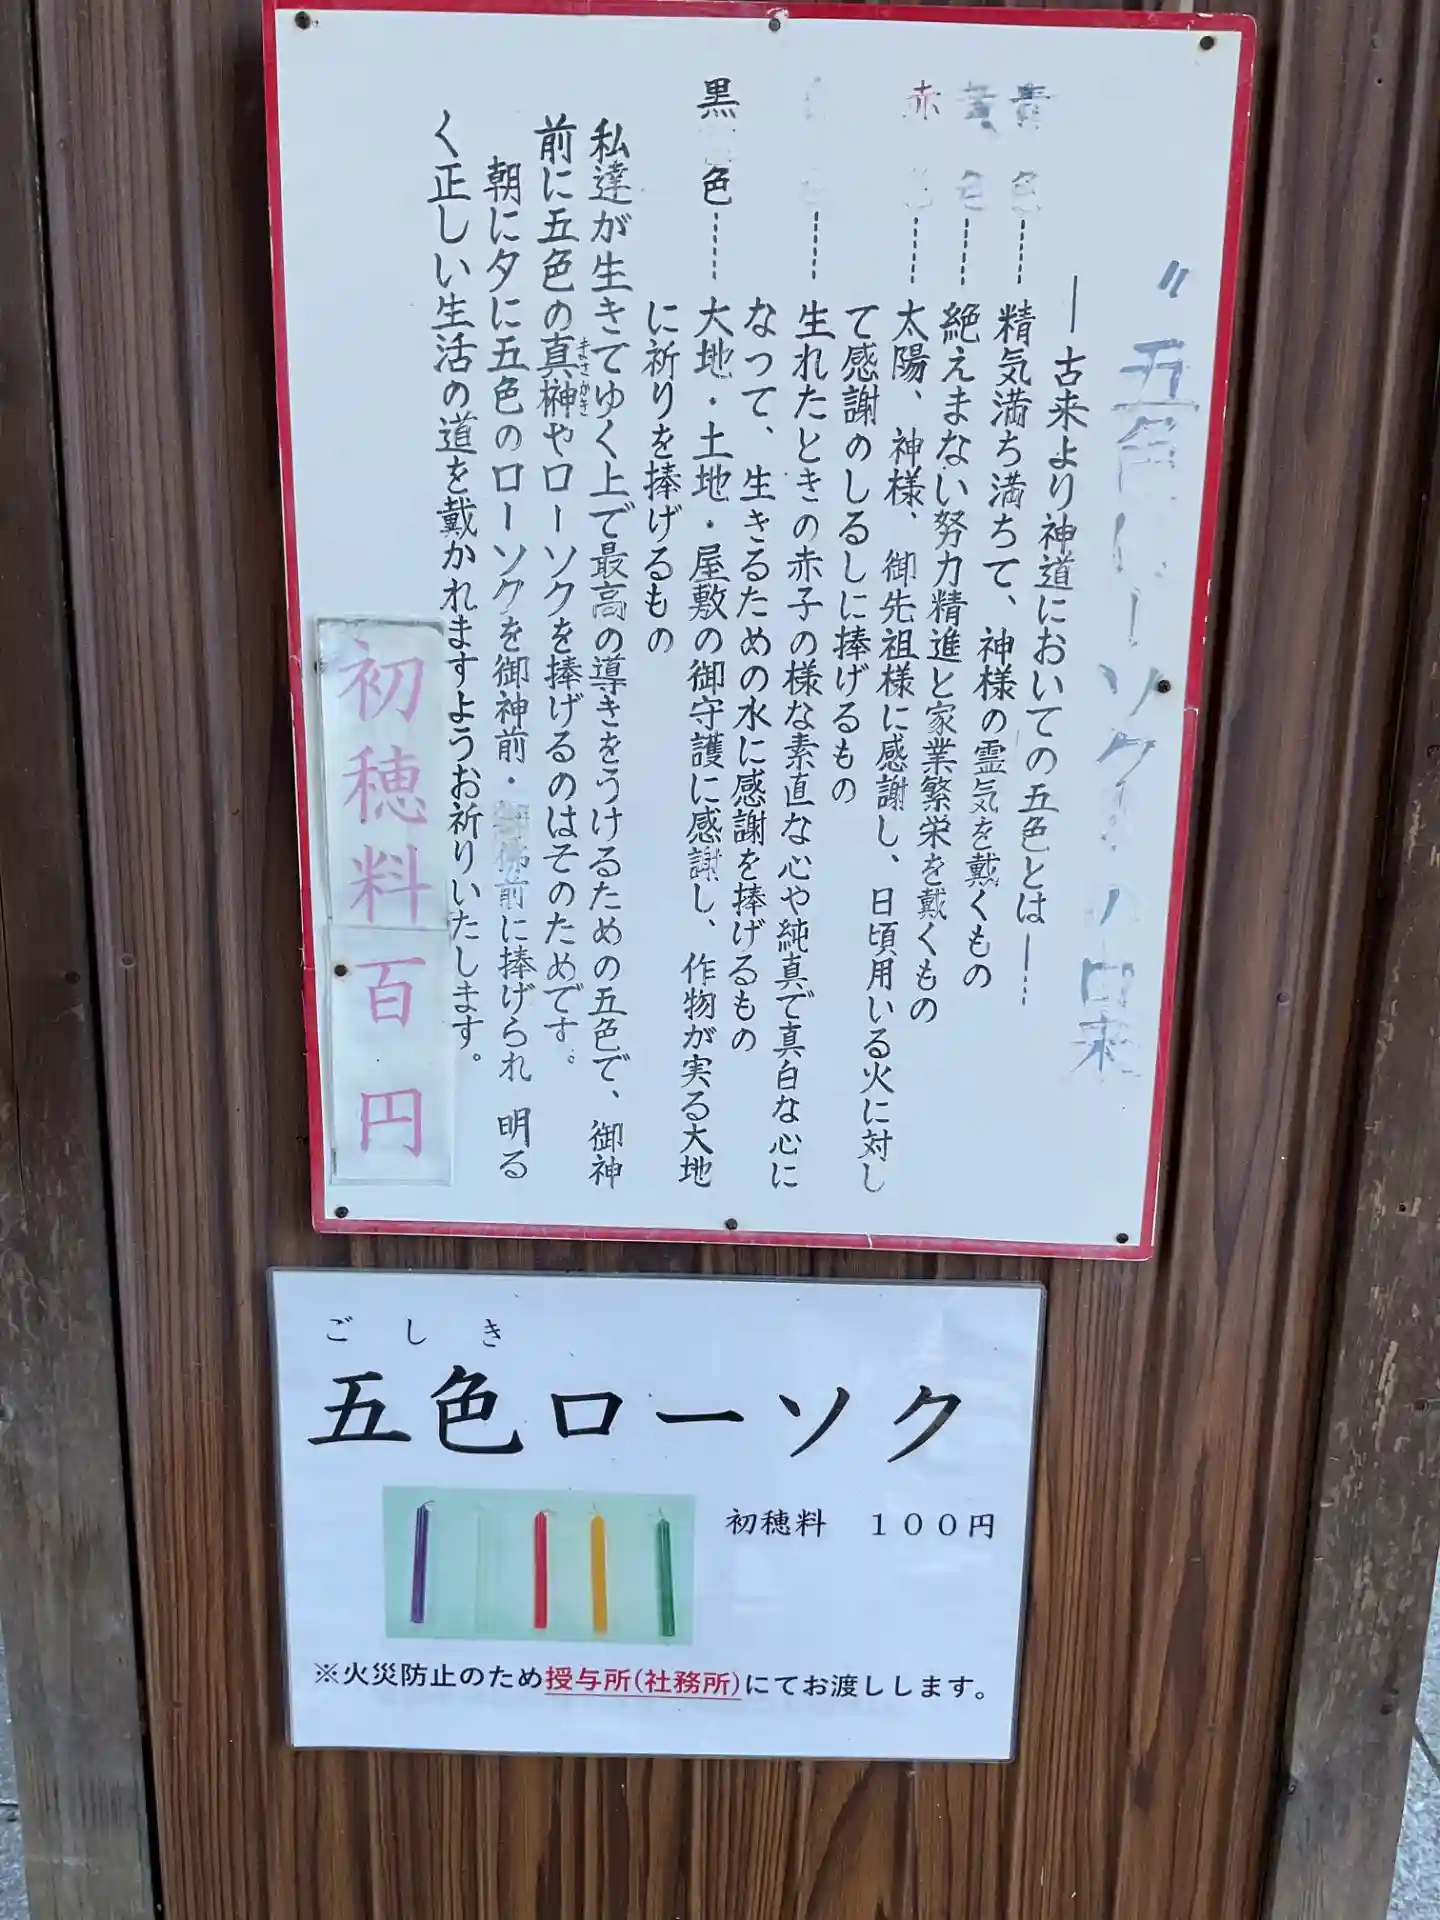 〃五色ローソク〃の由来
―古来より神道においての五色とは―…
青色……精気満ち満ちて、神様の霊気を戴くもの
黄色……絶えまない努力精進と家業繁栄を戴くもの
赤色……太陽、神様、御先祖様に感謝し、日頃用いる火に対し
て感謝のしるしに捧げるもの
色……生れたときの赤子の様な素直な心や純真で真白な心に
なって、生きるための水に感謝を捧げるもの
黒色……大地・土地・屋敷の御守護に感謝し、作物が実る大地
に祈りを捧げるもの
私達が生きてゆく上で最高の導きをうけるための五色で、御神
前に五色の真榊やローソクを捧げるのはそのためです。
まさかき
朝に夕に五色のローソクを御神前・御佛前に捧げられ 明る
く正しい生活の道を戴かれますようお祈りいたします。
初穂料百円
ごしき
五色ローソク
初穂料 100円
※火災防止のため授与所(社務所)にてお渡しします。